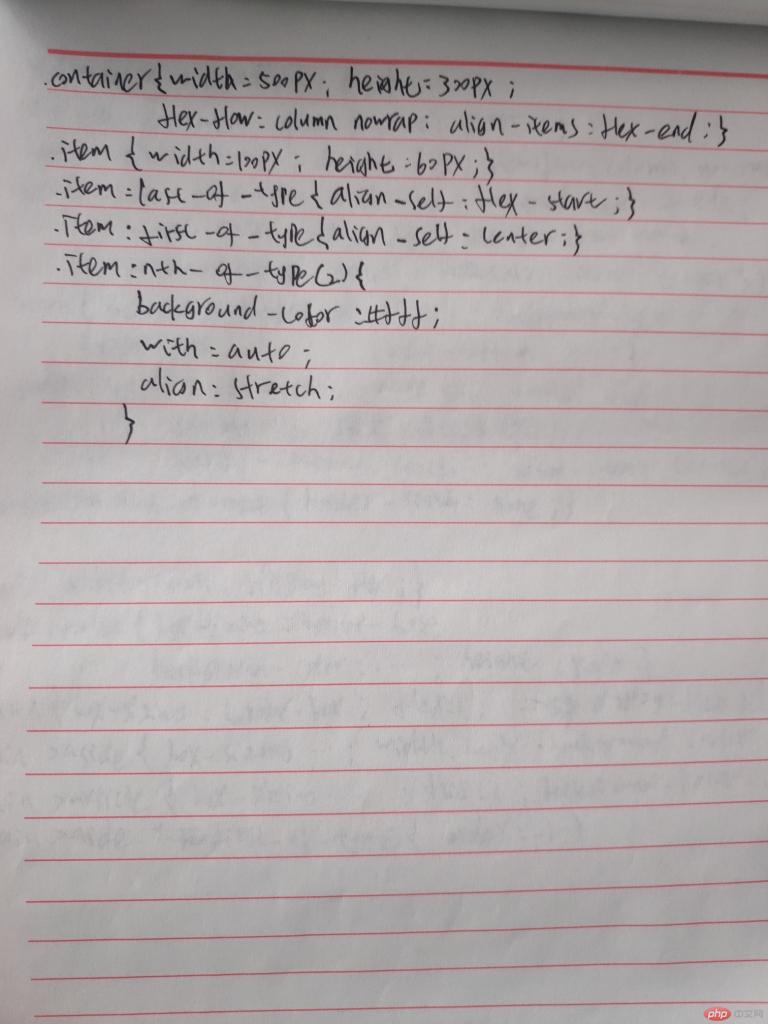 .container{width=500PX; height=300PX;
flex-flow: column nowrap; align-items: flex-end;}
.item { width=100PX; height=60PX;}
.item:last-of-type{ align-self: flex-start;}
.item:first-of-type{align-self: center;}
.item:nth-of-type(2){
background-color:#fff;
with=auto;
align: stretch;
}
php 中文网